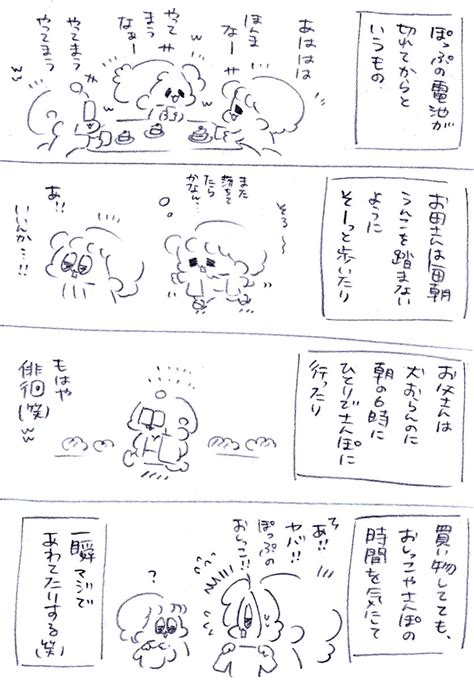 ぽっぷの電池が
切れてからと
いうもの、
あははは
ほんま
なぁー
やって
まう
なぁー
やってまう
やってまう
w
w
w
お母さんは毎朝
うんこを踏まない
ように
そーっと歩いたり
そろ〜
また
落ちて
たら
かなん…
あ!!
いいんか…!!
お父さんは
犬おらんのに
朝の6時に
ひとりでさんぽに
行ったり
もはや
徘徊(笑)
w
買い物してても、
おしっこやさんぽの
時間を気にして
あ!!
ヤバ!!
ぽっぷの
おしっこ!!
?
一瞬マジで
あわてたりする(笑)